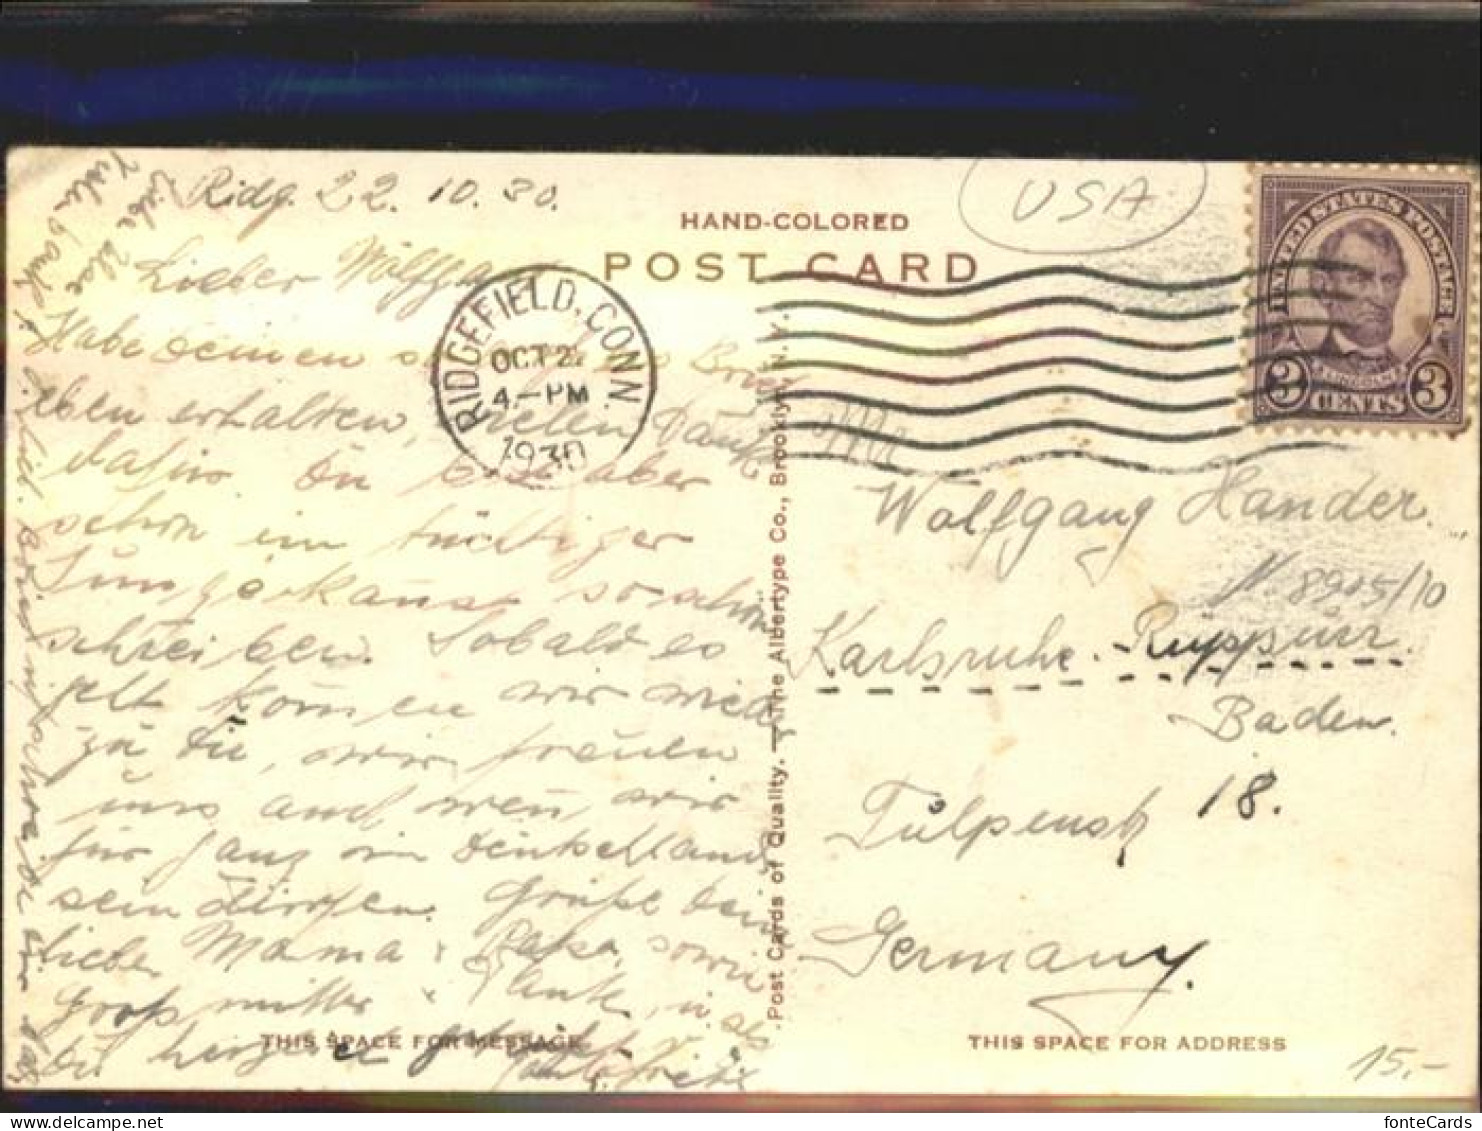 Ridg. 22. 10. 30.
Lieber Wolfgang
Habe Deinen Brief
eben erhalten, vielen Dank
dafür. Du bist aber
schon ein tüchtiger
Junge kanst so schön
schreiben. Sobald es
geht kommen wir wied
zu Dir, wir freuen
uns auch wen wir
für ganz in Deutschland
sein dürfen. Grüße dein
lieben Mama & Papa, sowie
Großmutter & Tante, u sei
du herzlich
Liebe
Vielen Dank f.
HAND-COLORED
POST CARD
USA
RIDGEFIELD, CONN
OCT 22
4-PM
1930
UNITED STATES POSTAGE
LINCOLN
3 CENTS 3
Wolfgang Hander.
N. 8905/10
Karlsruhe. Ruppürr.
Baden.
Tulpenstr 18.
Germany.
Post Cards of Quality. — The Albertype Co., Brooklyn, N. Y.
THIS SPACE FOR MESSAGE
THIS SPACE FOR ADDRESS
15.-
fonteCards